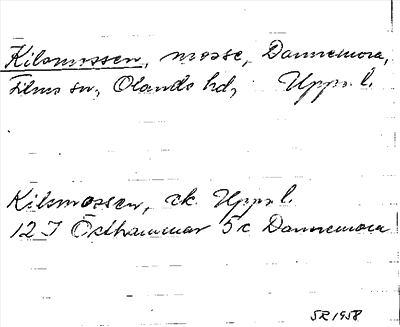 Kilsmossen, mosse, Dannemora,
Films sn, Olands hd, Upps. l.
Kilsmossen, ek. Upps. l.
12 I Östhammar 5c Dannemora
SR 1958